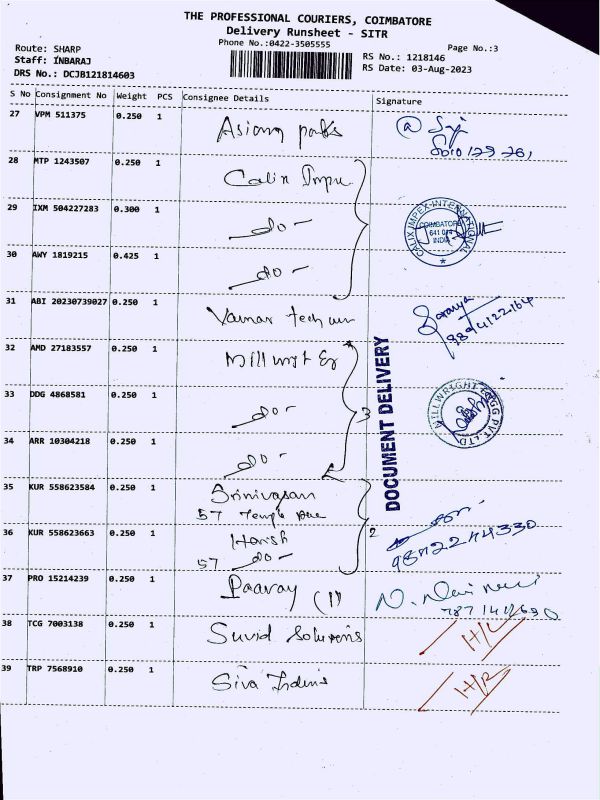 THE PROFESSIONAL COURIERS, COIMBATORE
Delivery Runsheet - SITR
Phone No.:0422-3505555
Page No.:3
Route: SHARP
Staff: INBARAJ
DRS No.: DCJB121814603
RS No.: 1218146
RS Date: 03-Aug-2023
S No Consignment No Weight PCS Consignee Details Signature
27 VPM 511375 0.250 1 Asiang
28 MTP 1243507 0.250 1 Calix Impe
29 IXM 504227283 0.300 1 - do -
CALIX IMPEX INTERNATIONAL
COIMBATORE
641 014
INDIA
30 AWY 1819215 0.425 1 - do -
31 ABI 20230739027 0.250 1 tech Saranya
9894122164
32 AMD 27183557 0.250 1 Millwright
33 DDG 4868581 0.250 1 - do - 3
MILLWRIGHT ENGG PVT LTD
34 ARR 10304218 0.250 1 - do -
DOCUMENT DELIVERY
35 KUR 558623584 0.250 1 Srinivasan
57 Temple
36 KUR 558623663 0.250 1 Harish 2
57 - do - 9842244330
37 PRO 15214239 0.250 1 Paavay (1) N.
38 TCG 7003138 0.250 1 Suvid Solutions H/L
39 TRP 7568910 0.250 1 Siva H/R